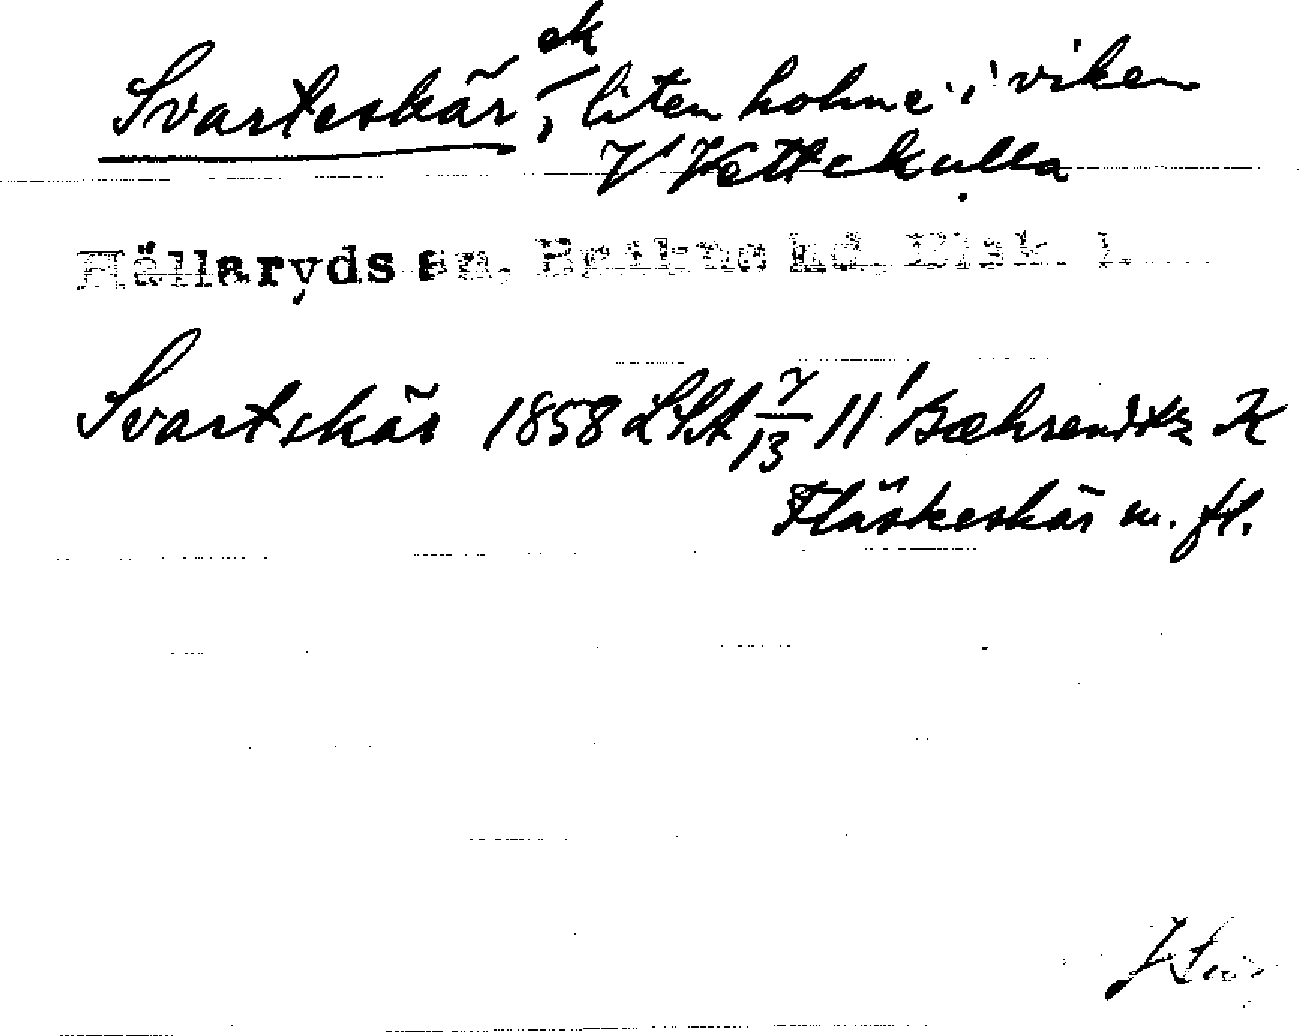 ek
Svarteskär, liten holme i viken
V Vettekulla
Hällaryds sn, Bräkne hd, Blek. l.
Svartskär 1858 LSA 7/13 11 Bæhrendtz K
Fläskeskär m. fl.